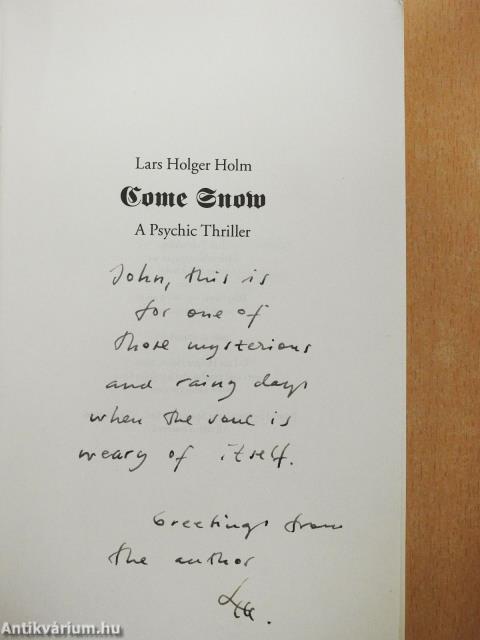 Lars Holger Holm
Come Snow
A Psychic Thriller
John, this is
for one of
those mysterious
and rainy days
when the soul is
weary of itself.
Greetings from
the author
Antikvárium.hu